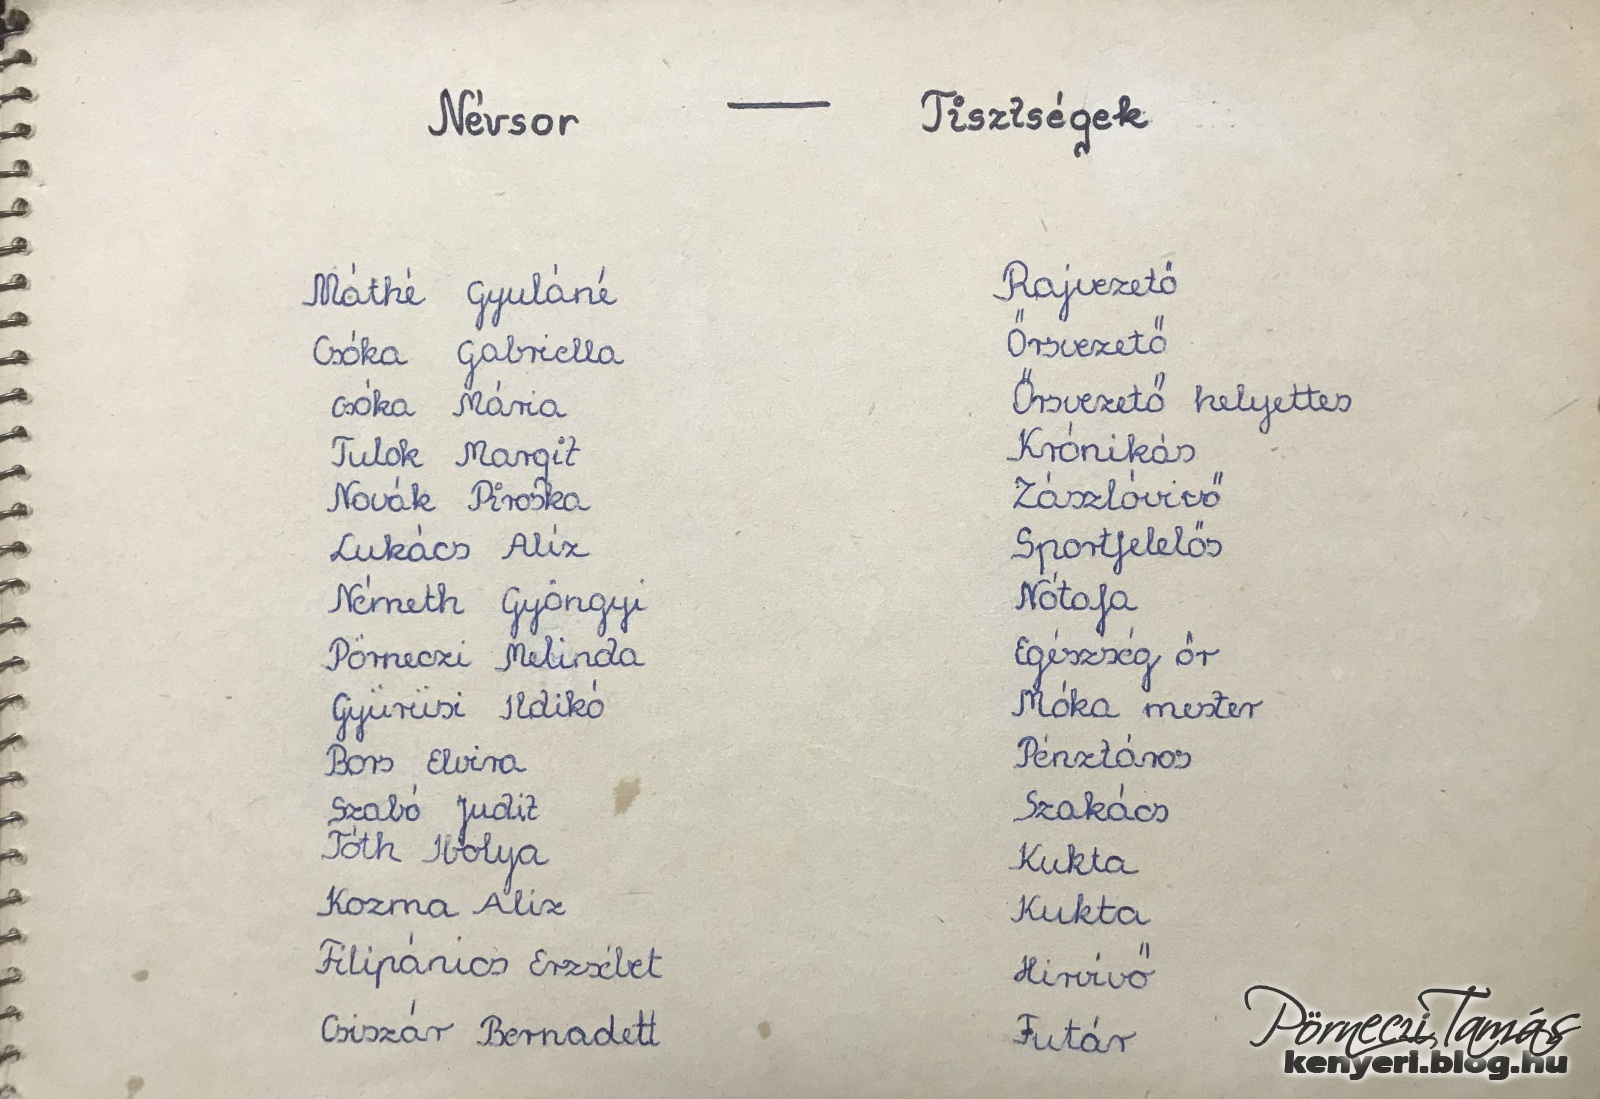 Névsor — Tisztségek
Máthé Gyuláné Rajvezető
Csóka Gabriella Őrsvezető
Csóka Mária Őrsvezető helyettes
Tulok Margit Krónikás
Novák Piroska Zászlóvivő
Lukács Alix Sportfelelős
Németh Gyöngyi Nótafa
Pörneczi Melinda Egészség őr
Gyürüsi Ildikó Móka mester
Bors Elvira Pénztáros
Szabó Judit Szakács
Tóth Ibolya Kukta
Kozma Alix Kukta
Filipánics Erzsébet Hírvívő
Csiszár Bernadett Futár
Pörneczi Tamás
kenyeri.blog.hu